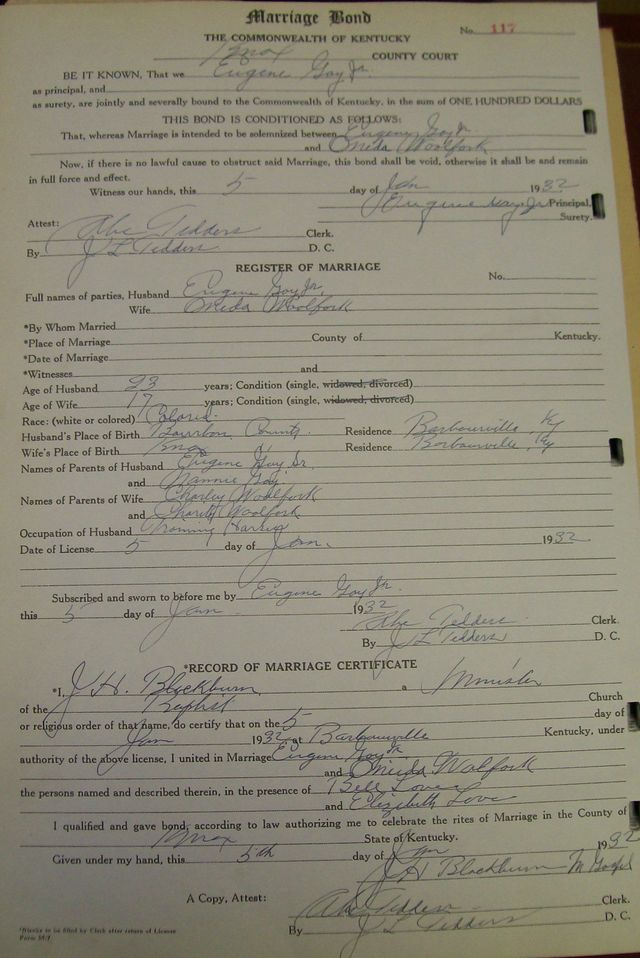 Marriage Bond
No. 117
THE COMMONWEALTH OF KENTUCKY
Knox COUNTY COURT
BE IT KNOWN, That we Eugene Gay Jr.
as principal, and
as surety, are jointly and severally bound to the Commonwealth of Kentucky, in the sum of ONE HUNDRED DOLLARS
THIS BOND IS CONDITIONED AS FOLLOWS:
That, whereas Marriage is intended to be solemnized between Eugene Gay Jr
and Oneida Woolfork
Now, if there is no lawful cause to obstruct said Marriage, this bond shall be void, otherwise it shall be and remain
in full force and effect.
Witness our hands, this 5 day of Jan 1932
Eugene Gay Jr Principal,
Surety.
Attest:
Abe Tedders Clerk.
By J L Tedders D. C.
REGISTER OF MARRIAGE
No.
Full names of parties, Husband Eugene Gay Jr,
Wife Oneida Woolfork
*By Whom Married
*Place of Marriage County of Kentucky.
*Date of Marriage
*Witnesses and
Age of Husband 23 years; Condition (single, widowed, divorced)
Age of Wife 17 years; Condition (single, widowed, divorced)
Race: (white or colored) Colored.
Husband's Place of Birth Bourbon County. Residence Barbourville, Ky
Wife's Place of Birth Knox Residence Barbourville, Ky
Names of Parents of Husband Eugene Gay Sr.
and Nannie Gay.
Names of Parents of Wife Charley Woolfork
and Charity Woolfork
Occupation of Husband Training Horses
Date of License 5 day of Jan. 1932
Subscribed and sworn to before me by Eugene Gay Jr.
this 5 day of Jan 1932
Abe Tedders Clerk.
By J L Tedders D. C.
*RECORD OF MARRIAGE CERTIFICATE
*I, J H. Blackburn a Minister
of the Baptist Church
or religious order of that name, do certify that on the 5 day of
Jan 1932, at Barbourville Kentucky, under
authority of the above license, I united in Marriage Eugene Gay Jr
and Oneida Wolfork
the persons named and described therein, in the presence of Bell Love
and Elizabeth Love
I qualified and gave bond, according to law authorizing me to celebrate the rites of Marriage in the County of
Knox State of Kentucky.
Given under my hand, this 5th day of Jan 1932
J H Blackburn M Gospel
A Copy, Attest: Abe Tedders Clerk.
By J L Tedders D. C.
*Blanks to be filled by Clerk after return of License